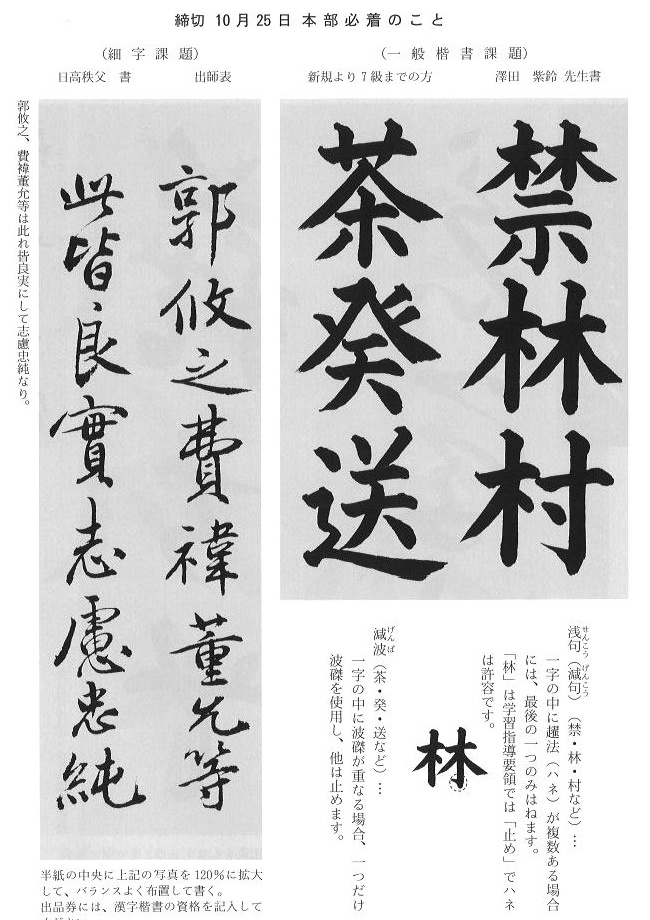 締切 10月25日本部必着のこと
（一般楷書課題）
新規より7級までの方　澤田　紫鈴 先生書
禁林村
茶癸送
浅句（減句）（禁・林・村など）…
せんこう　げんこう
一字の中に趯法（ハネ）が複数ある場合
には、最後の一つのみはねます。
「林」は学習指導要領では「止め」でハネ
は許容です。
林
減波（茶・癸・送など）…
げんぱ
一字の中に波磔が重なる場合、一つだけ
波磔を使用し、他は止めます。
（細字課題）
日高秩父　書　出師表
郭攸之費褘董允等
此皆良實志慮忠純
郭攸之、費褘董允等は此れ皆良実にして志慮忠純なり。
半紙の中央に上記の写真を120％に拡大
して、バランスよく布置して書く。
出品券には、漢字楷書の資格を記入して